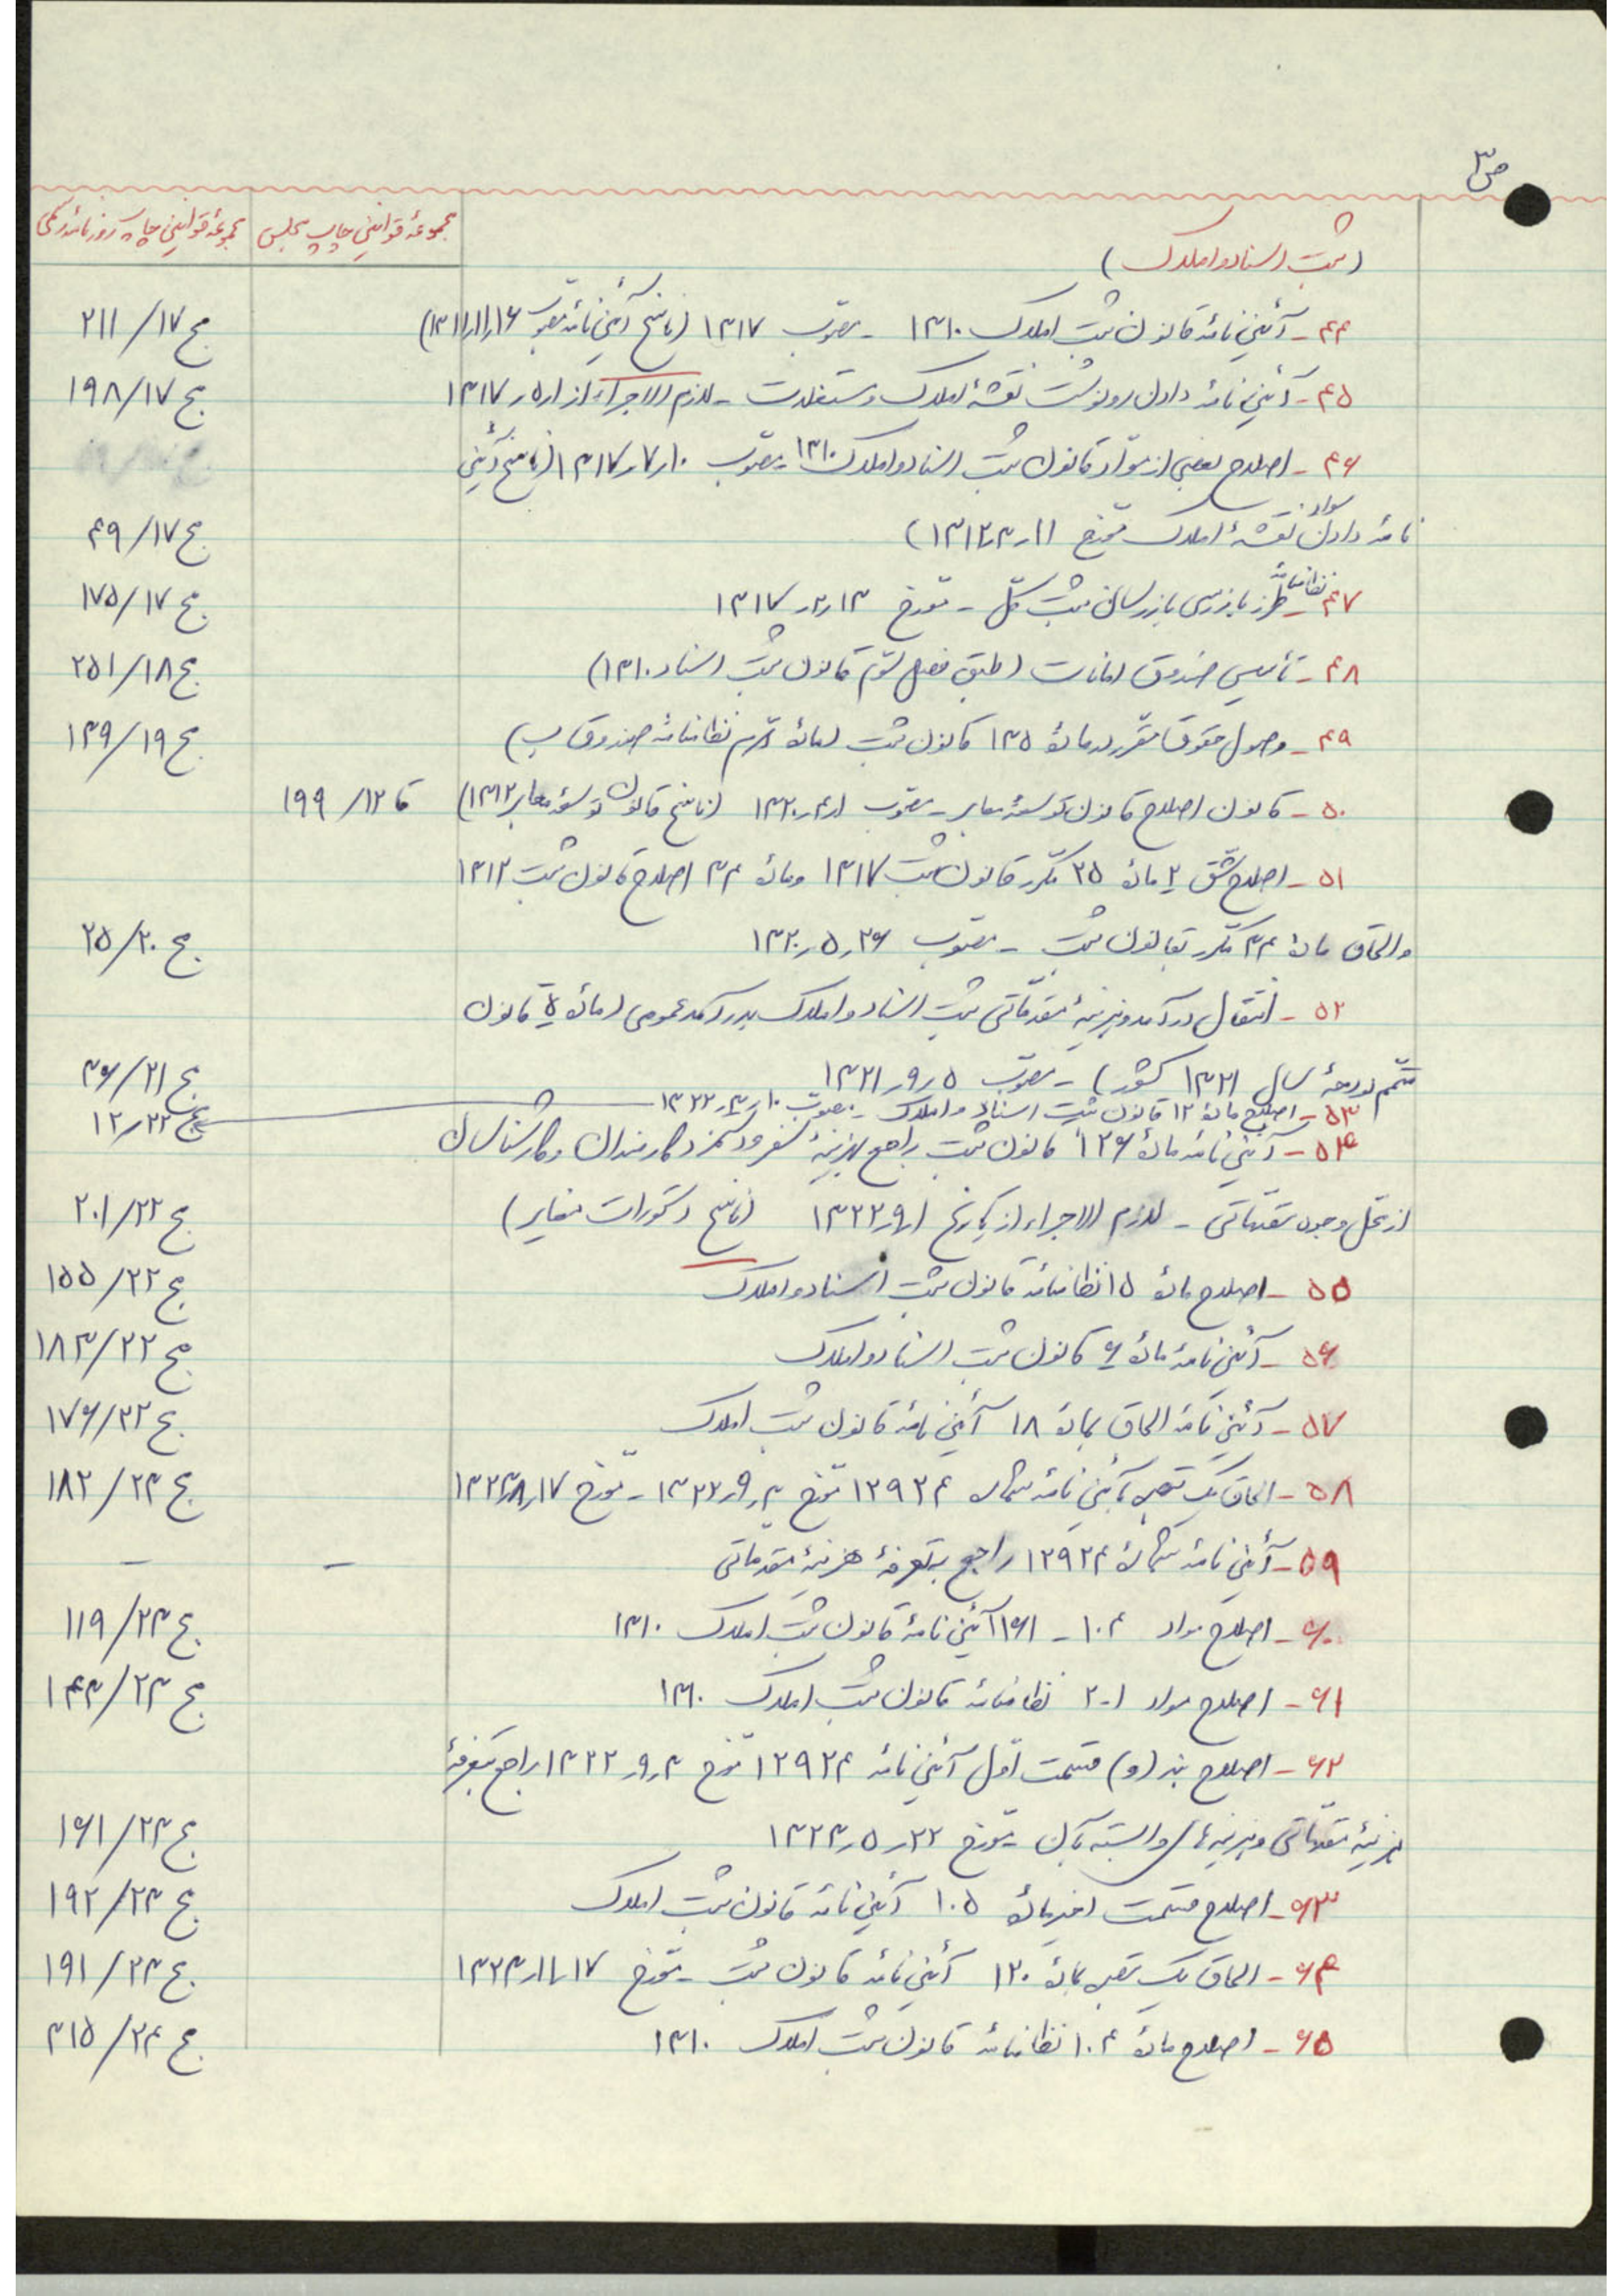 ص۳
(ثبت اسناد و املاک)
مجموعهٔ قوانین چاپ مجلس
مجموعهٔ قوانین چاپ روزنامه رسمی
۴۴ - آئین نامه قانون ثبت املاک ۱۳۱۰ - مصوب ۱۳۱۷ (ناسخ آئین نامه مصوب ۱۳۱۱ر۱۱ر۱۶) مج ۱۷/ ۲۱۱
۴۵ - آئین نامهٔ دادن رونوشت نقشهٔ املاک و مستغلات - لازم الاجراء از ۱ر۵ر۱۳۱۷ مج ۱۷/ ۱۹۸
۴۶ - اصلاح بعضی از مواد قانون ثبت اسناد و املاک ۱۳۱۰ - مصوب ۱۰ر۷ر۱۳۱۷ (ناسخ آئین
نامه دادن سواد نقشهٔ املاک مورخ ۱۱ر۳ر۱۳۱۲) مج ۱۷/ ۴۹
۴۷ - نظامنامه طرز بازرسی بازرسان ثبت کل - مورخ ۱۳ر۲ر۱۳۱۷ مج ۱۷/ ۱۷۵
۴۸ - تأسیس صندوق امانات (طبق فصل سوم قانون ثبت اسناد ۱۳۱۰) مج ۱۸/ ۲۵۱
۴۹ - وصول حقوق مقرر در مادهٔ ۱۳۵ قانون ثبت (مادهٔ نظامنامه صندوق ب) مج ۱۹/ ۱۳۹
۵۰ - قانون اصلاح قانون توسعهٔ معابر - مصوب ۱ر۴ر۱۳۲۰ (ناسخ قانون توسعهٔ معابر ۱۳۱۲) قا ۱۲/ ۱۹۹
۵۱ - اصلاح شق ۲ مادهٔ ۲۵ مکرر قانون ثبت ۱۳۱۷ و مادهٔ ۳۴ اصلاح قانون ثبت ۱۳۱۲
و الحاق مادهٔ ۳۴ مکرر بقانون ثبت - مصوب ۲۶ر۵ر۱۳۲۰ مج ۲۰/ ۲۵
۵۲ - انتقال درآمد و هزینهٔ مقدماتی ثبت اسناد و املاک بدرآمد عمومی (مادهٔ ۵ قانون
متمم بودجهٔ سال ۱۳۲۱ کشور) - مصوب ۵ر۹ر۱۳۲۱ مج ۲۱/ ۳۶
۵۳ - اصلاح مادهٔ ۱۲ قانون ثبت اسناد و املاک - مصوب ۱۰ر۳ر۱۳۲۲ مج ۲۲/ ۱۲
۵۴ - آئین نامه مادهٔ ۱۲۶ قانون ثبت راجع بهزینهٔ سفر و دستمزد کارمندان و کارشناسان
از محل وجوه مقدماتی - لازم الاجراء از تاریخ ۱ر۹ر۱۳۲۲ (ناسخ دستورات مغایر) مج ۲۲/ ۲۰۱
۵۵ - اصلاح مادهٔ ۱۵ نظامنامه قانون ثبت اسناد و املاک مج ۲۲/ ۱۵۵
۵۶ - آئین نامهٔ مادهٔ ۶ قانون ثبت اسناد و املاک مج ۲۲/ ۱۸۳
۵۷ - آئین نامه الحاق بمادهٔ ۱۸ آئین نامه قانون ثبت املاک مج ۲۲/ ۱۷۶
۵۸ - الحاق یک تبصره بآئین نامه شماره ۱۲۹۲۴ مورخ ۳ر۹ر۱۳۲۲ - مورخ ۱۷ر۸ر۱۳۲۳ مج ۲۳/ ۱۸۲
۵۹ - آئین نامهٔ شمارهٔ ۱۲۹۲۴ راجع بتعرفهٔ هزینهٔ مقدماتی - -
۶۰ - اصلاح مواد ۱۰۴ - ۱۶۱ آئین نامهٔ قانون ثبت املاک ۱۳۱۰ مج ۲۳/ ۱۱۹
۶۱ - اصلاح مواد ۱-۲ نظامنامه قانون ثبت املاک ۱۳۱۰ مج ۲۳/ ۱۴۳
۶۲ - اصلاح بند (و) قسمت اول آئین نامه ۱۲۹۲۴ مورخ ۳ر۹ر۱۳۲۲ راجع بتعرفهٔ
هزینهٔ مقدماتی و هزینه های وابسته بآن - مورخ ۲۲ر۵ر۱۳۲۳ مج ۲۳/ ۱۶۱
۶۳ - اصلاح قسمت اخیر مادهٔ ۱۰۵ آئین نامه قانون ثبت املاک مج ۲۳/ ۱۹۲
۶۴ - الحاق یک تبصره بمادهٔ ۱۲۰ آئین نامه قانون ثبت - مورخ ۱۷ر۱۱ر۱۳۲۳ مج ۲۳/ ۱۹۱
۶۵ - اصلاح مادهٔ ۱۰۴ نظامنامه قانون ثبت املاک ۱۳۱۰ مج ۲۴/ ۳۱۵